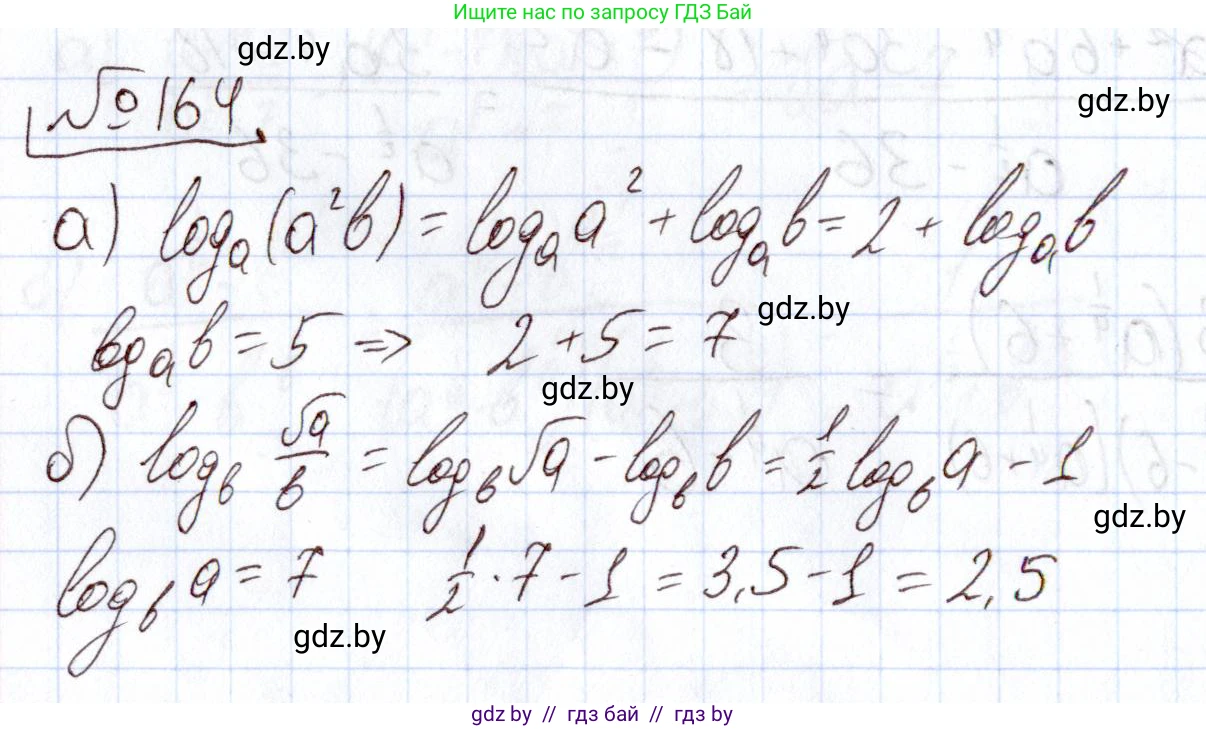 Ищите нас по запросу ГДЗ Бай
gdz.by
№ 164
gdz.by
а) log_a(a²b) = log_a a² + log_a b = 2 + log_a b
gdz.by
log_a b = 5 ⇒ 2 + 5 = 7
gdz.by
б) log_b √a/b = log_b √a - log_b b = 1/2 log_b a - 1
gdz.by
log_b a = 7 1/2 · 7 - 1 = 3,5 - 1 = 2,5
gdz.by
gdz by // гдз бай // гдз by